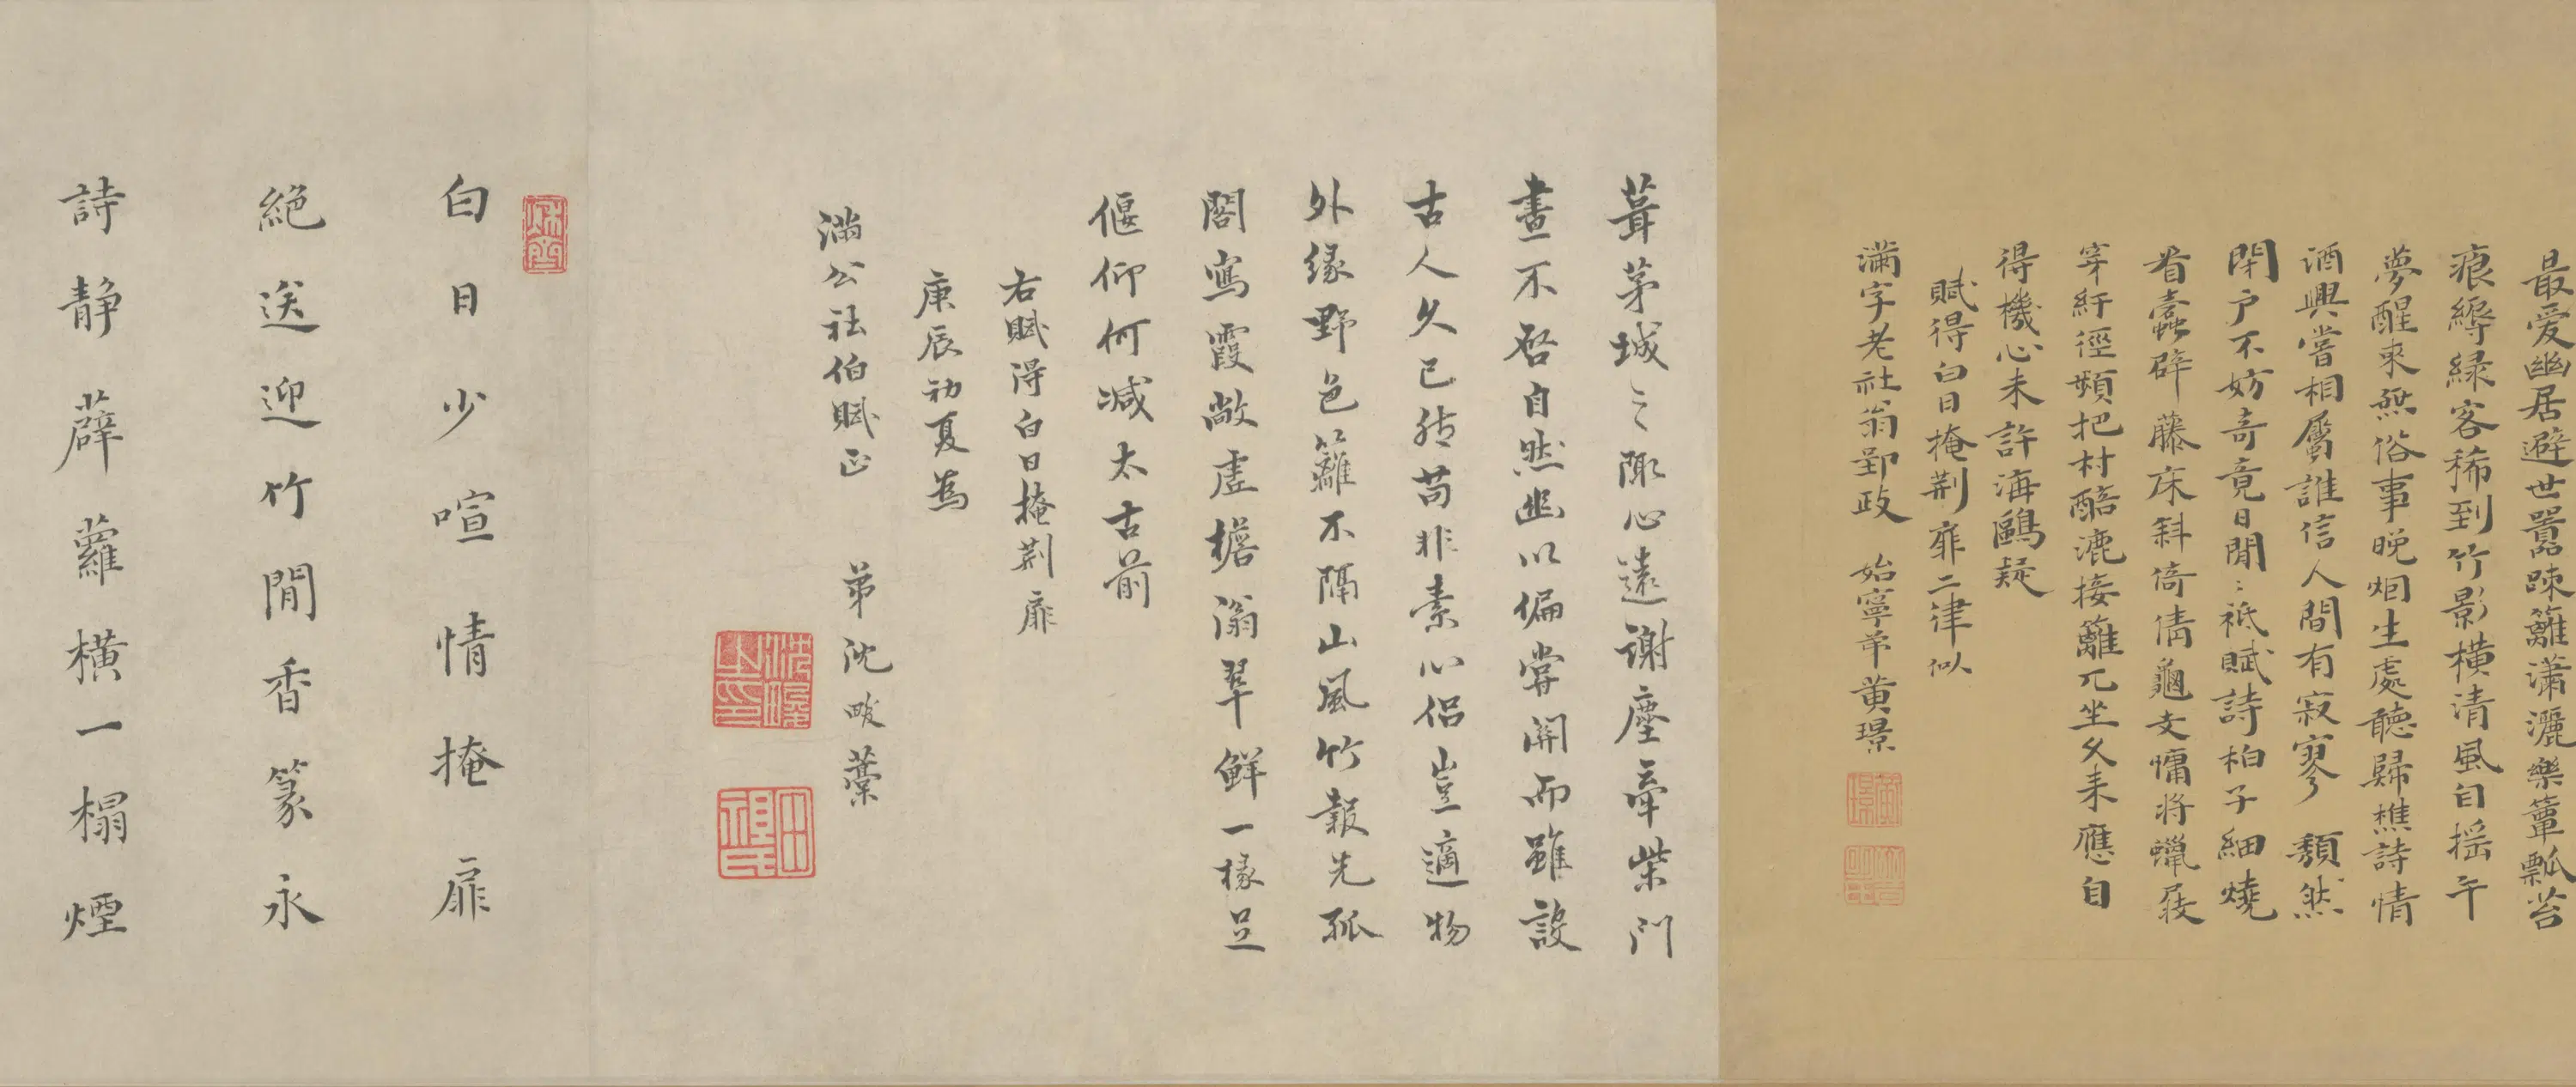 最愛幽居避世囂踈籬瀟灑樂簞瓢苔
痕縟緑客稀到竹影橫清風自揺午
夢醒來無俗事晚烟生處聽歸樵詩情
酒興嘗相屬誰信人間有寂寥 頹然
閉户不妨奇竟日閒〻祗賦詩柏子細燒
看蠹辟藤床斜倚倩龜支慵將蠟屐
穿紆徑頻把村醅漉接籬兀坐久来應自
得機心未許海鷗疑
賦得白日掩荆扉二律似
滿字老社翁郢政 始寧弟黄璟
葺茅城之陬心遠謝塵牽柴門
晝不啓自然幽以偏嘗關而雖設
古人久已然苟非素心侣豈適物
外緣野色籬不隔山風竹報先孤
閣寫霞敞虚檐滃翠鮮一椽足
偃仰何减太古前
右賦得白日掩荆扉
庚辰初夏為
滿公社伯賦正 弟沈畯藁
白日少喧情掩扉
絶送迎竹閒香篆永
詩静薜蘿橫一榻煙